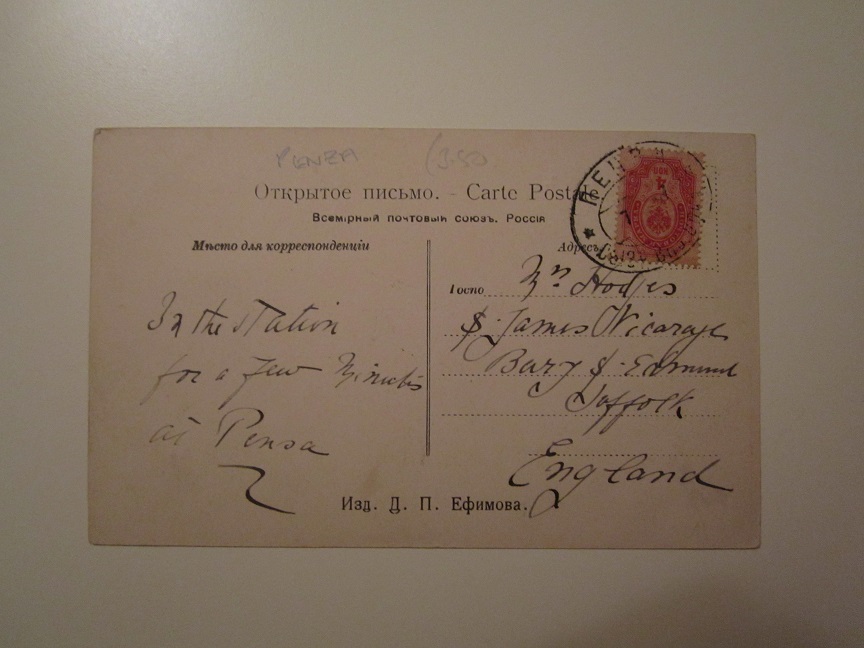 PENZA (3.50
Открытое письмо. - Carte Postale
Всемірный почтовый союзъ. Россія
Мѣсто для корреспонденціи
Адресъ
In the station
for a few Minutes
at Pensa
Госпо
Mrs Hodges
St. James Vicarage
Bury St. Edmund
Suffolk
England
Изд. Д. П. Ефимова.